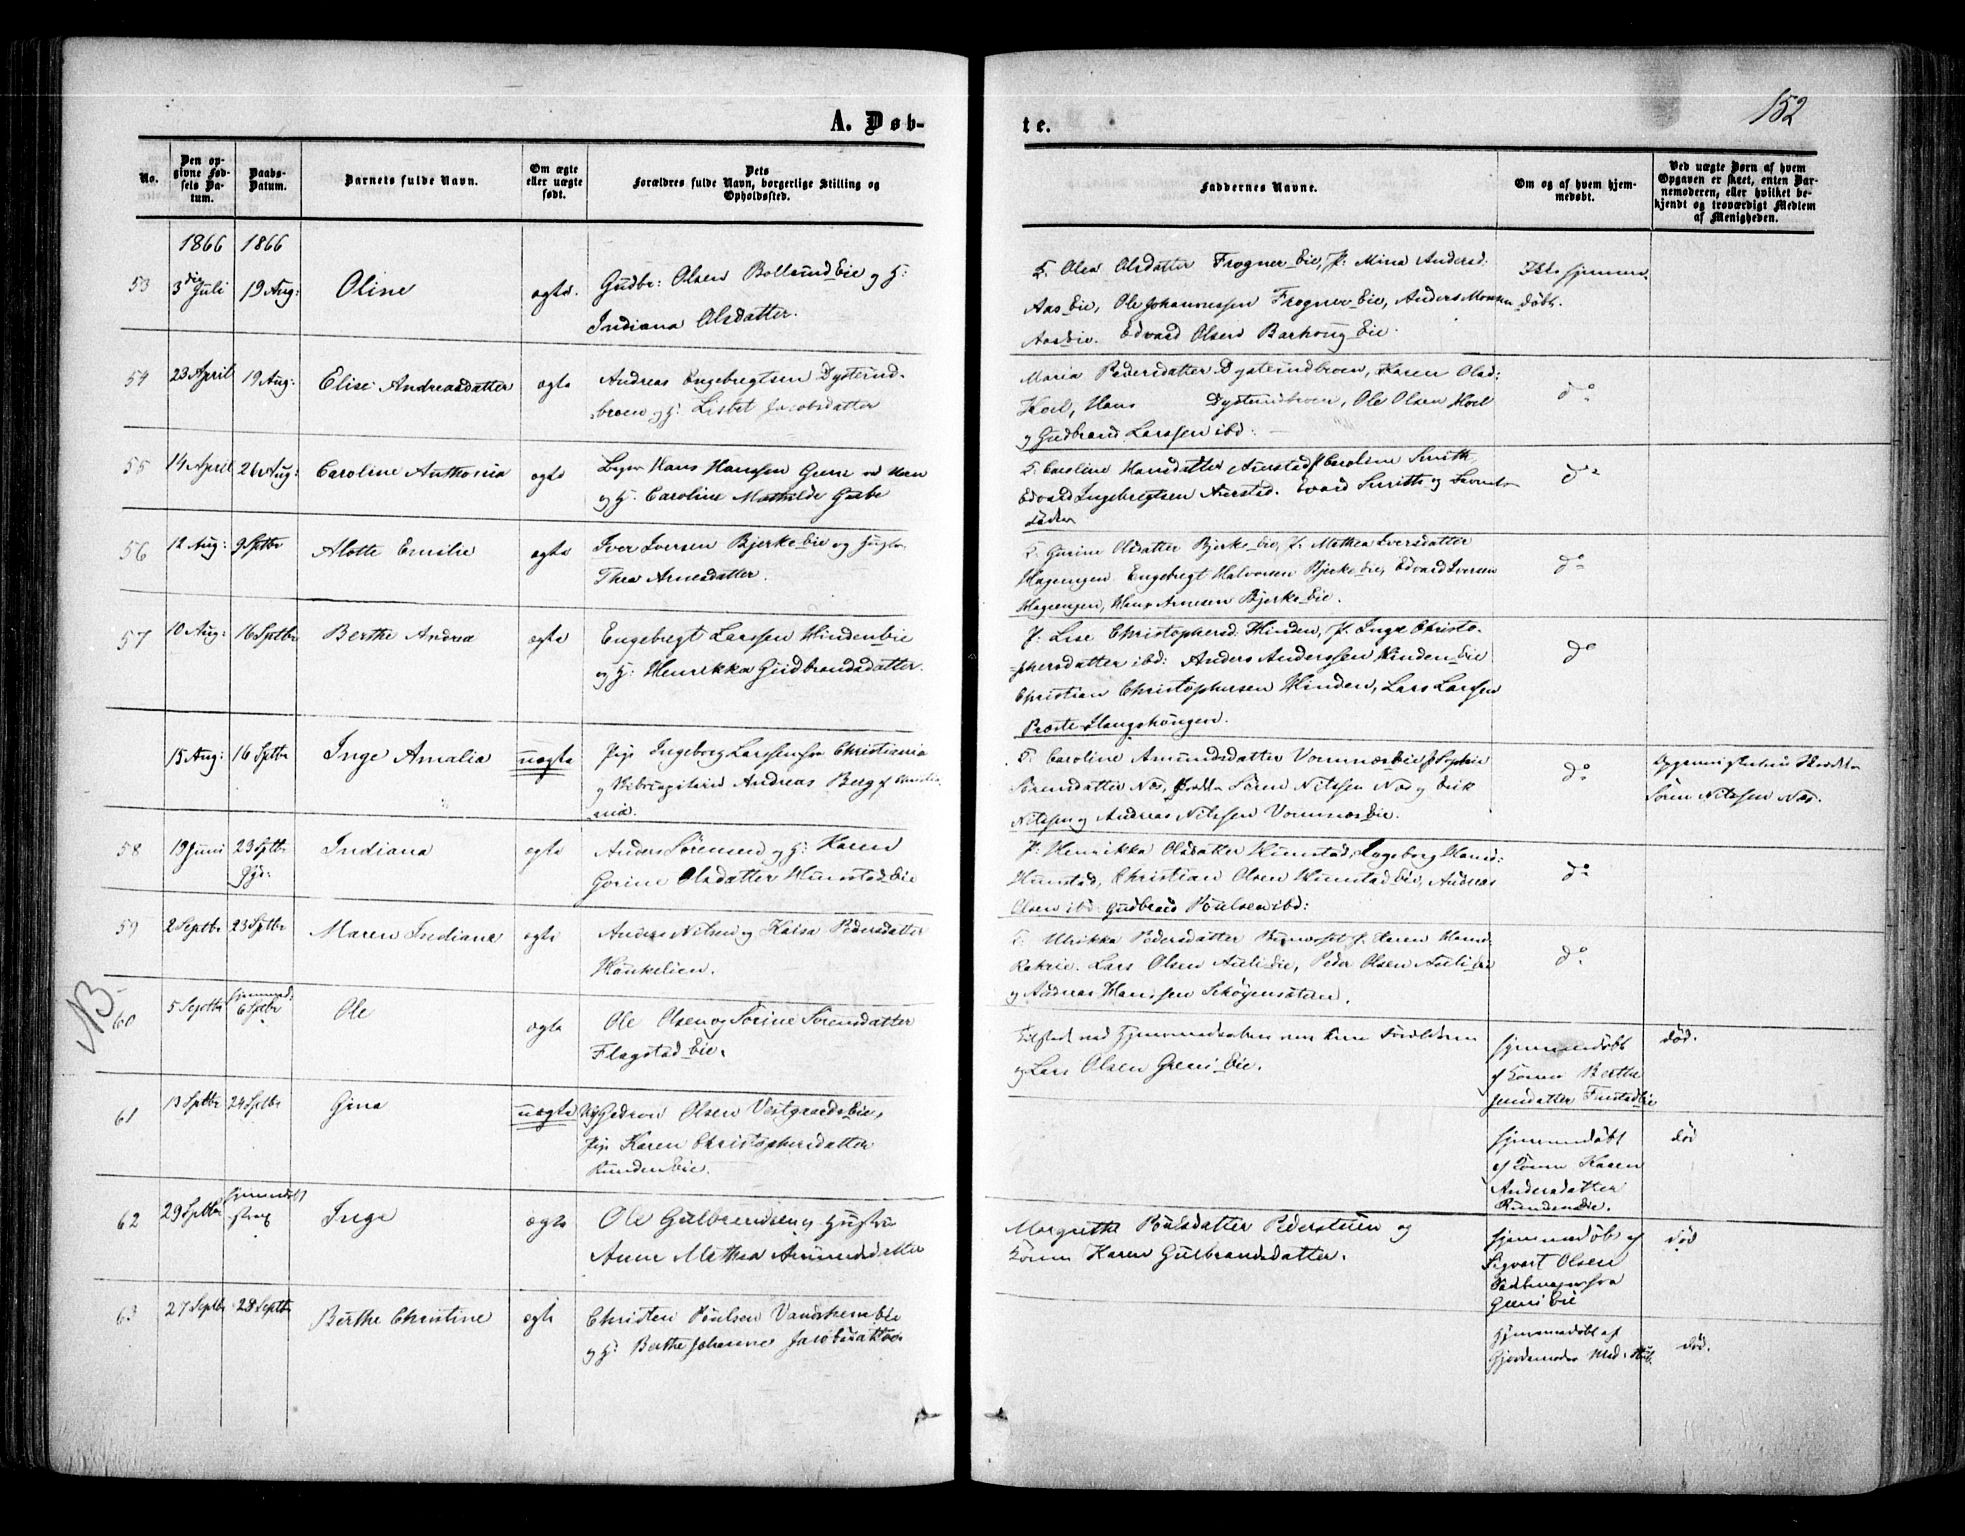 152
A. Døb-
te.
No.
Den op-
givne Fød-
sels Da-
tum.
Daabs-
Datum.
Barnets fulde Navn.
Om ægte
eller uægte
født.
Dets
Forældres fulde Navn, borgerlige Stilling og
Opholdssted.
Faddernes Navne.
Om og af hvem hjem-
medøbt.
Ved uægte Børn af hvem
Opgaven er skeet, enten Bar-
nemoderen, eller hvilket be-
kjendt og troværdigt Medlem
af Menigheden.
1866 1866
53
3die Juli
19 Aug:
Oline
ægte
Gudbr: Olsen Bollund Eie og H:
Indiana Olsdatter.
Olea Olsdatter Frogner Eie, P: Mina Andersd.
Aas Eie, Ole Johannessen Frogner Eie, Anders Monsen
Aas Eie. Edvard Olsen Barhoug Eie.
Ikke hjemme
døbt.
54
23 April
19 Aug:
Elise Andreasdatter
ægte
Andreas Engebregtsen Dysterud-
broen og H: Lisbet Jacobsdatter
Maria Pedersdatter Dysterudbroen, Karen Olsd:
Hoel, Hans Dysterudbroen, Ole Olsen Hoel
og Gudbrand Larssen ibd:
do
55
14 April
26 Aug:
Caroline Anthonia
ægte
Hans Hanssen
og H: Caroline Mathilde
Caroline Hansdatter Aurstad P Caroline Smith
Edvard Ingebregtsen Aurstad. Evard Smith og
do
56
12 Aug:
9 Septbr
Alette Emilie
ægte
Iver Iversen Bjerke Eie og
Thea Arnesdatter.
Gurine Olsdatter Bjerke Eie, P: Mathea Iversdatter
Hagengen Engebregt Halvorsen Bjerke Eie, Edvard Iversen
Hagengen, Hans Arnesen Bjerke Eie.
do
57
10 Aug:
16 Septbr
Berthe Andrea
ægte
Engebregt Larssen Hinden Eie
og H: Henrikka Gudbrandsdatter.
P: Lise Christophersd. Hinden, P: Inge Christo-
phersdatter ibd: Anders Anderssen Hinden Eie
Christian Christophersen Hinden, Lars Larssen
do
15 Aug:
16 Septbr
Inge Amalia
uægte
Pige Ingeborg Larssen fra Christiania
og Andreas Berg
Caroline Amundsdatter Vormnæs Eie P Sophie
Sørensdatter Næs, Sören Nilssen Næs og Erik
Nilssen og Andreas Nilssen Vormnæs Eie.
do
Sören Nilssen Næs.
58
19 Juni
23 Septbr
Indiana
ægte
Anders Sørensen og H: Karen
Gorine Olsdatter Hunstad Eie
P: Henrikka Olsdatter Hunstad, Ingeborg Hansd:
Hunstad, Christian Olsen Hunstad Eie, Andreas
Olsen ibd: Gudbrand Poulsen ibd:
do
59
2 Septbr
23 Septbr
Maren Indiane
ægte
Anders Nilsen og Kaisa Pedersdatter
Hönkelien.
Ulrikka Pedersdatter P. Karen Hansd.
Lars Olsen Auli Eie, Peder Olsen Auli Eie
og Andreas Hanssen
do
NB
60
5 Septbr
6 Septbr
Ole
ægte
Ole Olsen og Sörine Sørensdatter
Flagstad Eie.
Forældrene
og Lars Olsen Greni Eie.
hjemmedøbt
af Konen Berthe
Eie
død.
61
13 Septbr
24 Septbr
Gina
uægte
Olsen Vestgaards Eie,
Pige Karen Christophersdatter
Runden Eie.
hjemmedøbt
af Konen Karen
Andersdatter
Runden Eie.
død
62
29 Septbr
hjemmedøbt
strax
Inge
ægte
Ole Gulbrandsen og Hustru
Anne Mathea Amundsdatter
Margrethe Poulsdatter Pederstuen og
Konen Karen Gulbrandsdatter.
hjemmedøbt af
Sigvart Olsen
Greni Eie
død
63
27 Septbr
28 Septbr
Berthe Christine
ægte
Christen Poulsen Vandshem Eie
og H: Berthe Johanne Jacobsdatter
hjemmedøbt af
Gjordemoder
død.